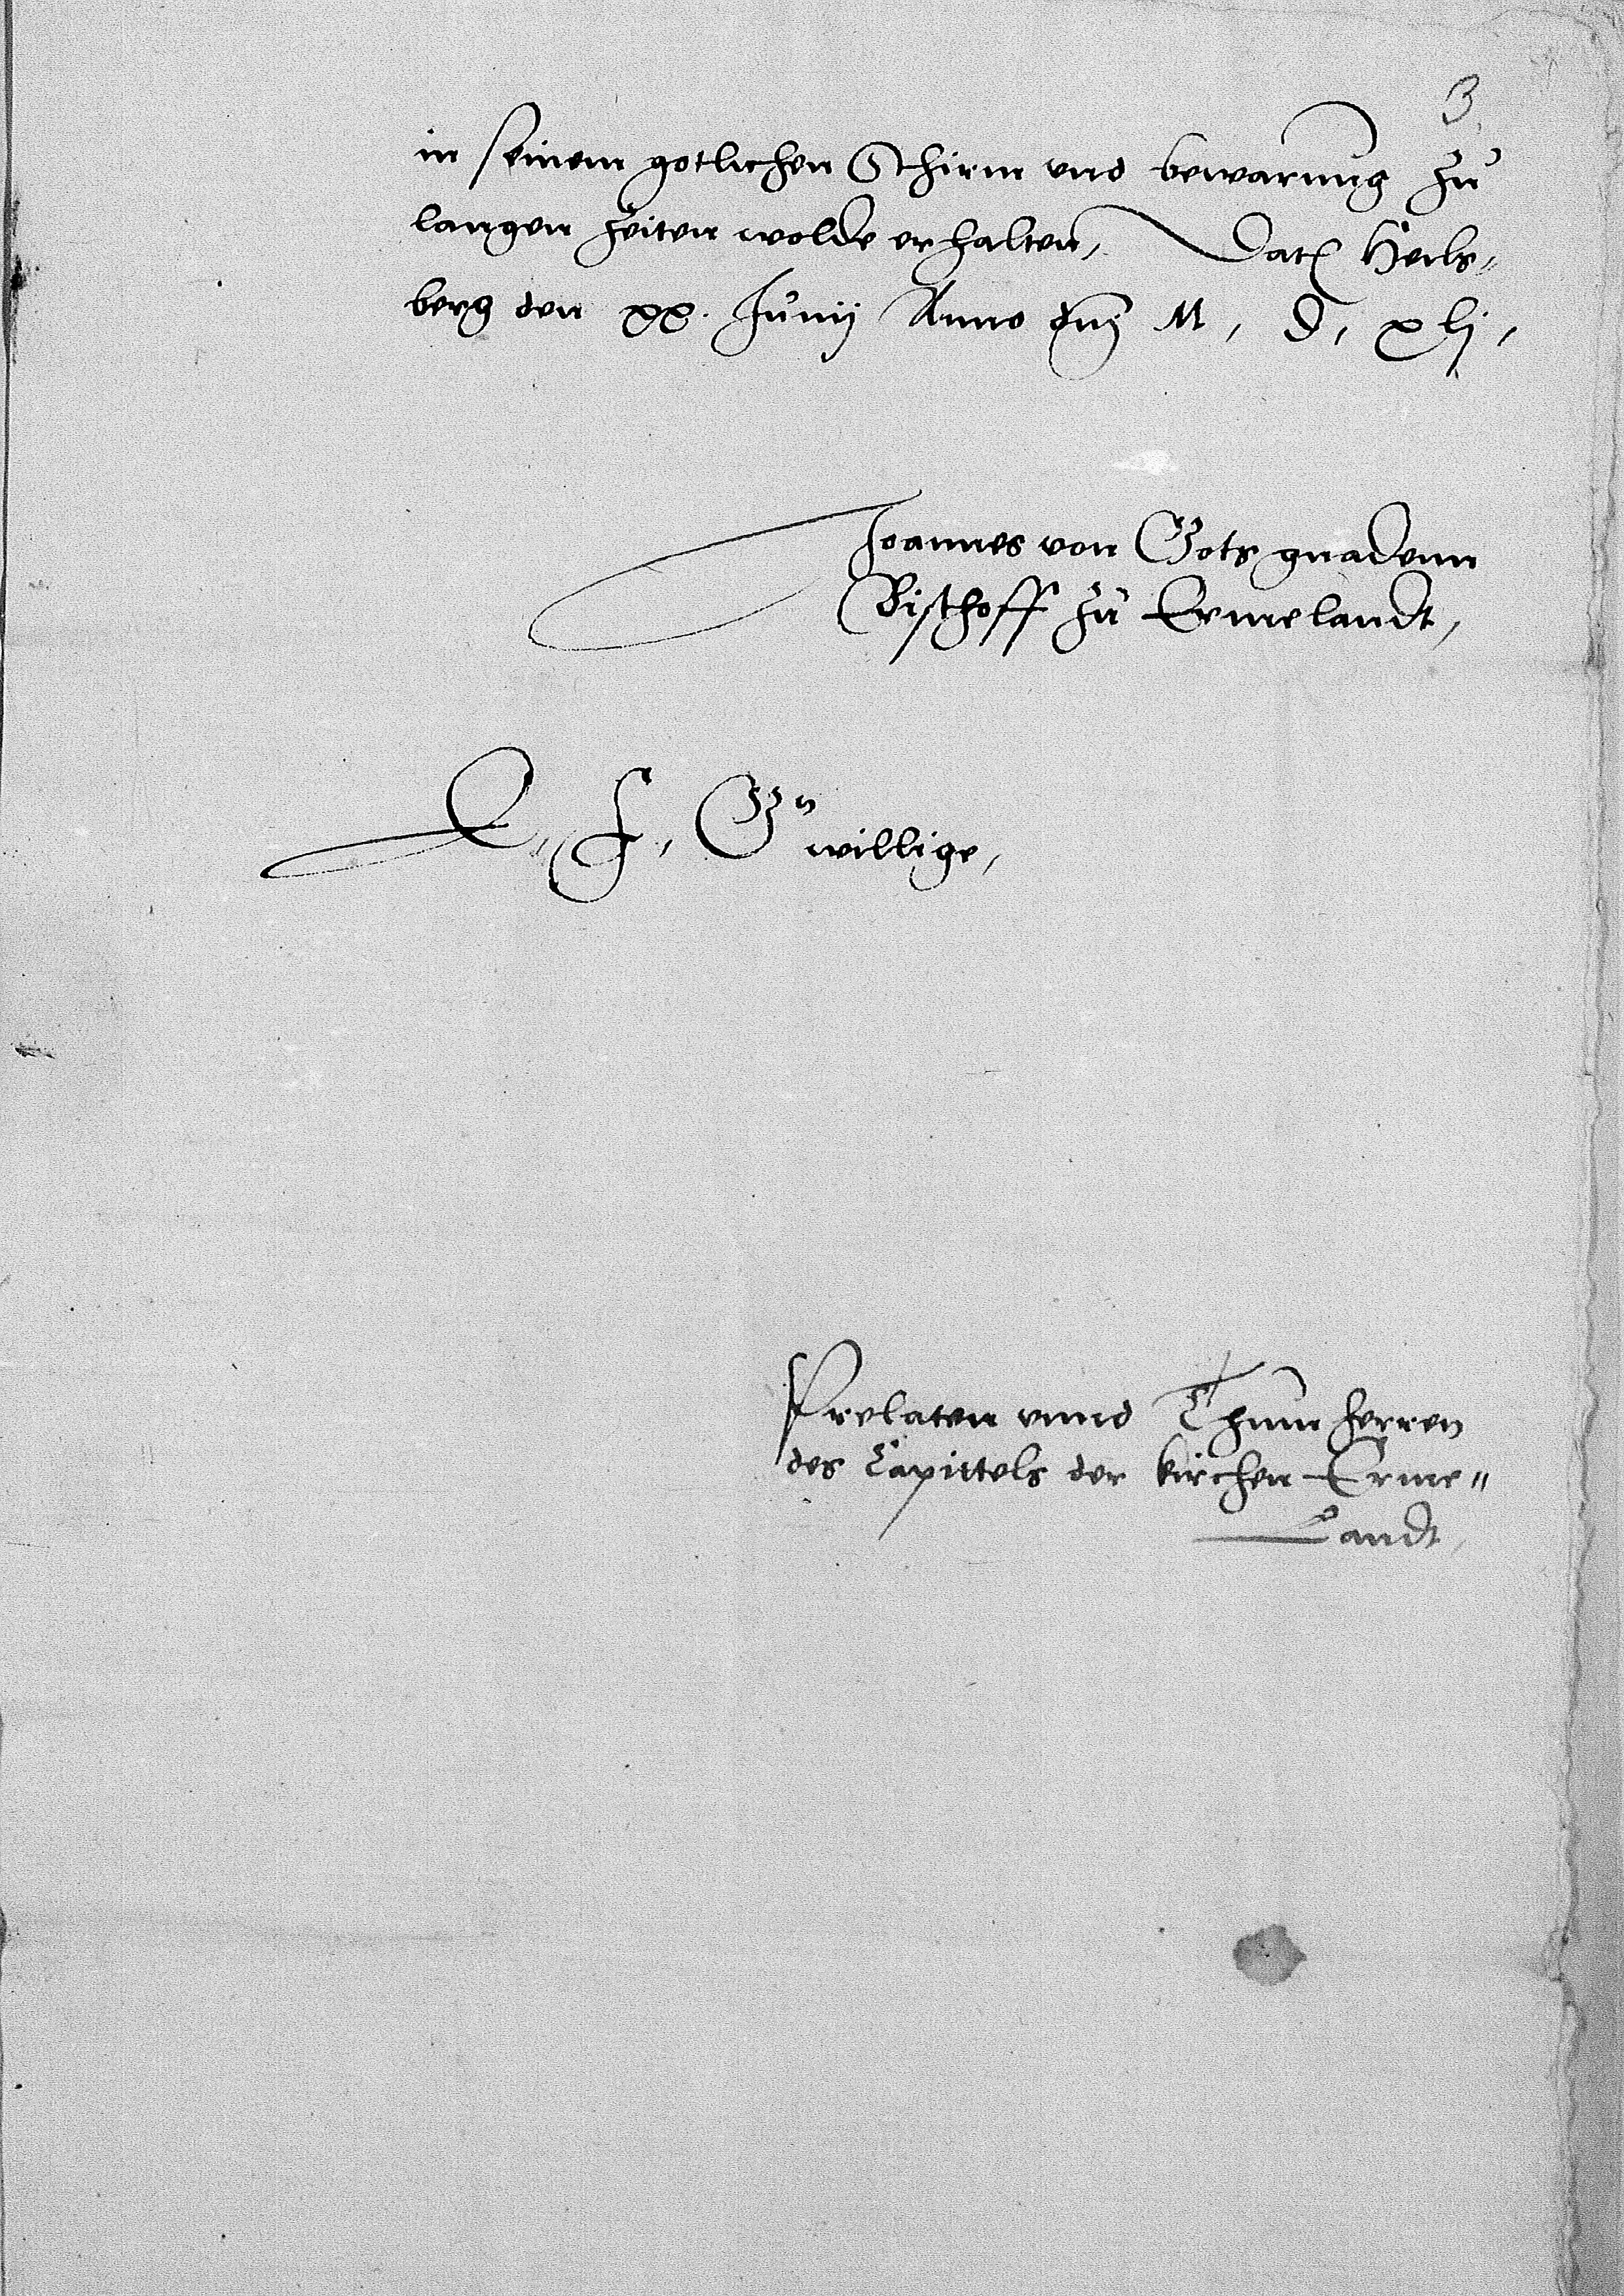 3
in seinem gotlichen Schirm und bewarung zu
langen zeiten wolde erhalten, Dat Heils-
berg den xx. Junij Anno dnj M, D, xlj,
Joannes von Gots gnadenn
Bischoff zu Ermelandt,
E, F, Gn willige,
Prelaten unnd Thumherren
des Capittels der kirchen Erme-
Landt,